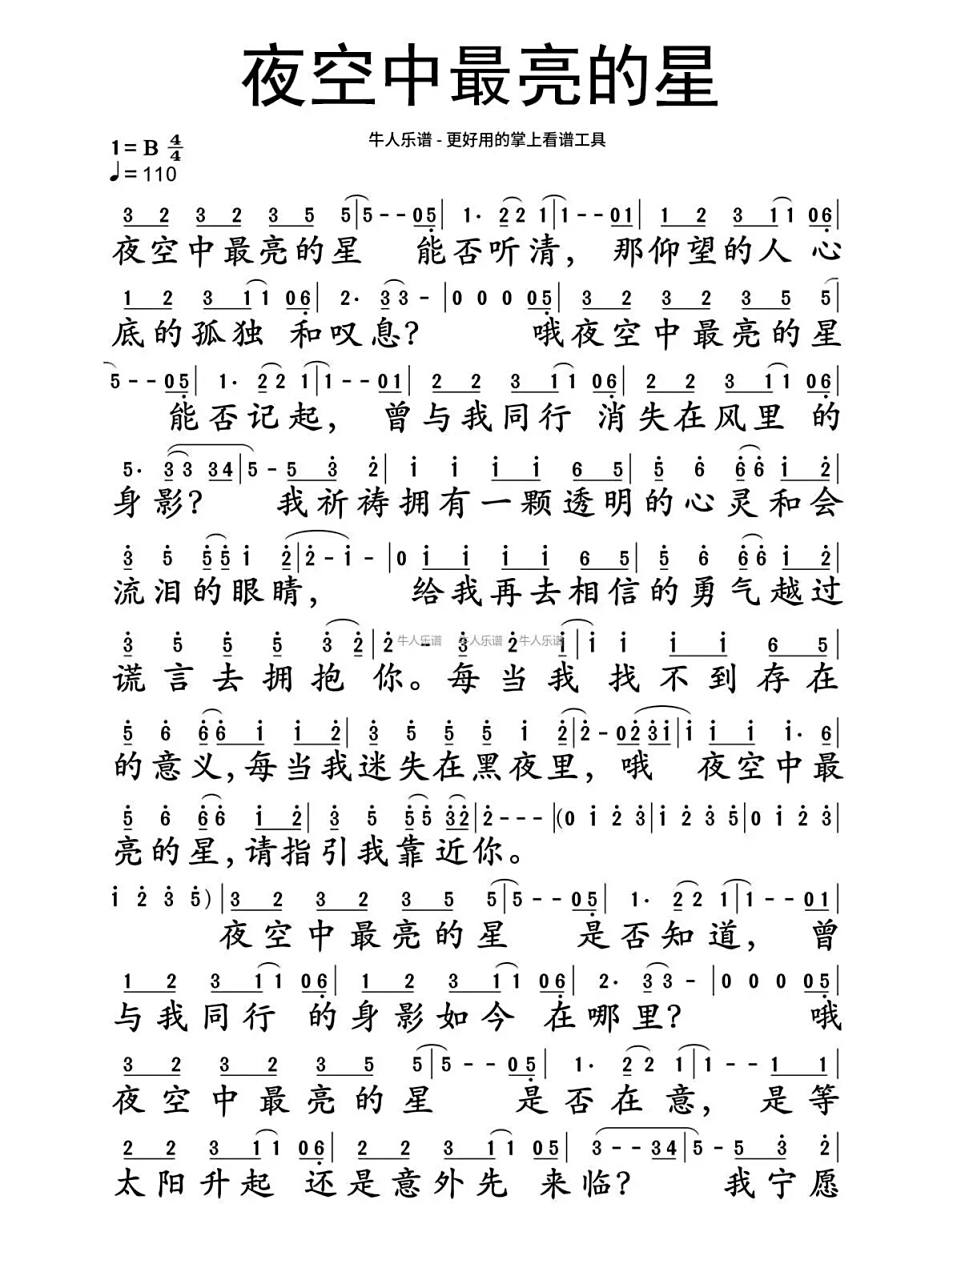 夜空中最亮的星
牛人乐谱 - 更好用的掌上看谱工具
1= B 4/4
♩= 110
3 2 3 2 3 5 5|5 - - 05| 1· 22 1|1 - - 01| 1 2 3 11 06|
夜空中最亮的星 能否听清， 那仰望的人 心
1 2 3 11 06| 2· 33 - |0 0 0 05| 3 2 3 2 3 5 5|
底的孤独 和叹息? 哦夜空中最亮的星
5 - - 05| 1· 22 1|1 - - 01| 2 2 3 11 06| 2 2 3 11 06|
能否记起， 曾与我同行 消失在风里 的
5· 33 34|5 - 5 3 2| 1 1 1 1 6 5| 5 6 66 1 2|
身影? 我祈祷拥有一颗透明的心灵和会
3 5 55 1 2|2 - 1 - |0 1 1 1 1 6 5| 5 6 66 1 2|
流泪的眼睛， 给我再去相信的勇气越过
3 5 5 5 3 2|2 - 3 2 1|1 1 1 1 6 5|
牛人乐谱 牛人乐谱 牛人乐谱
谎言去拥抱你。每当我找不到存在
5 6 66 1 1 2| 3 5 5 5 1 2|2 - 02 31|1 1 1 1· 6|
的意义，每当我迷失在黑夜里，哦 夜空中最
5 6 66 1 2| 3 5 55 32|2 - - - |(0 1 2 3|1 2 3 5|0 1 2 3|
亮的星，请指引我靠近你。
1 2 3 5)|3 2 3 2 3 5 5|5 - - 05| 1· 22 1|1 - - 01|
夜空中最亮的星 是否知道， 曾
1 2 3 11 06|1 2 3 11 06| 2· 33 - |0 0 0 05|
与我同行 的身影如今 在哪里? 哦
3 2 3 2 3 5 5|5 - - 05| 1· 22 1|1 - - 1 1|
夜空中最亮的星 是否在意， 是等
2 2 3 11 06|2 2 3 11 05| 3 - - 34|5 - 5 3 2|
太阳升起 还是意外先 来临? 我宁愿